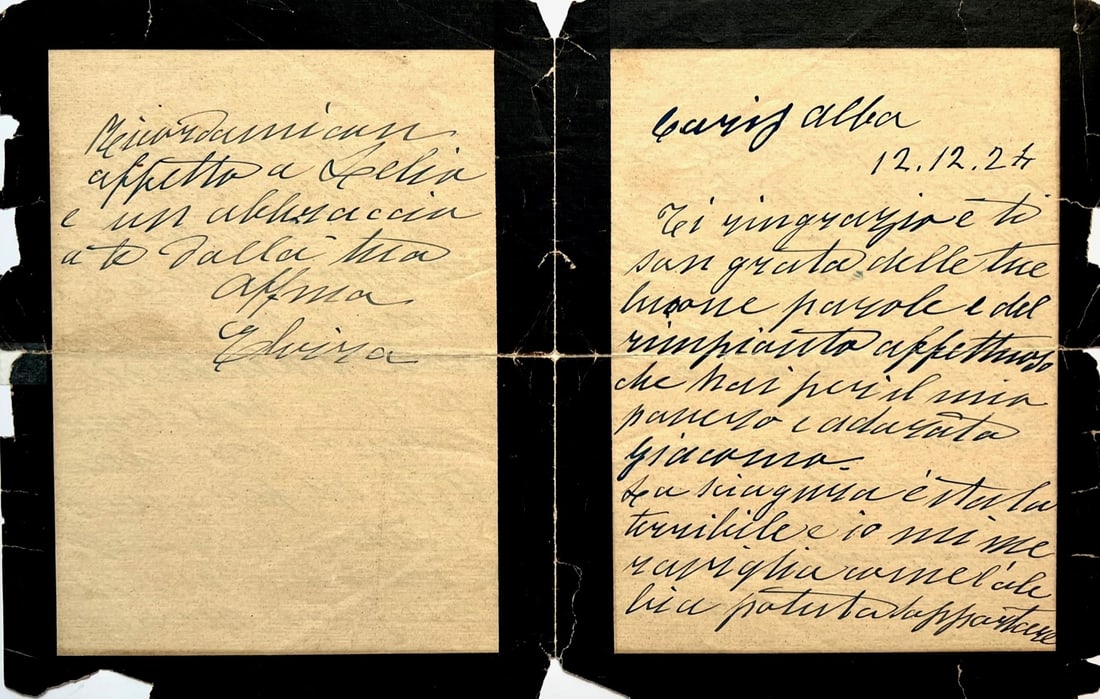 Caris Alba
12.12.24
Ti ringrazio e ti
son grata delle tue
buone parole e del
rimpianto affettuoso
che hai per il mio
povero e adorato
Giacomo.
La sciagura è stata
terribile e io mi me
raviglio come l'ab
bia potuta sopportare
Ricordami con
affetto a Lelio
e un abbraccio
a te dalla tua
Affma
Elvira